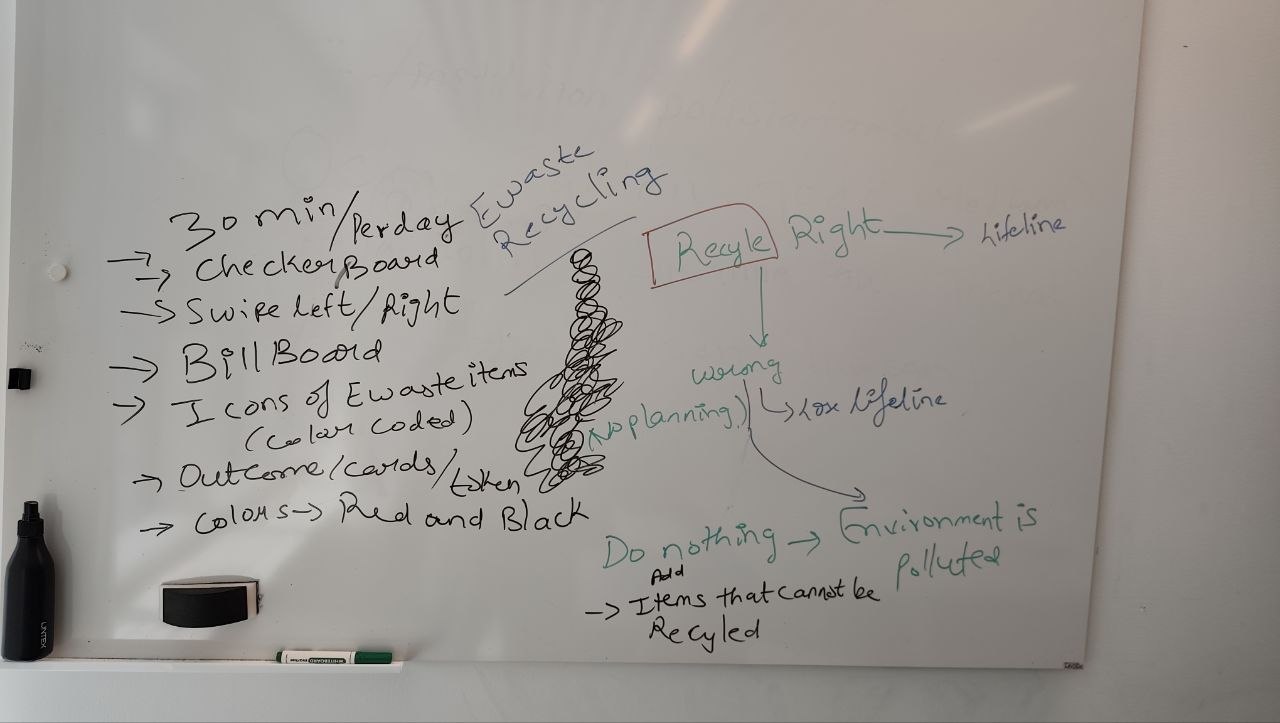 Ewaste
Recycling
30 min/Perday
→ CheckerBoard
→ Swipe left/Right
→ BillBoard
→ Icons of Ewaste items
(color coded)
→ Outcome/cards/token
→ colors → Red and Black
Recyle Right → Lifeline
wrong
(No planning)
↳ Lose lifeline
Do nothing → Environment is
polluted
Add
→ Items that cannot be
Recyled
UNTEX
WHITEBOARD